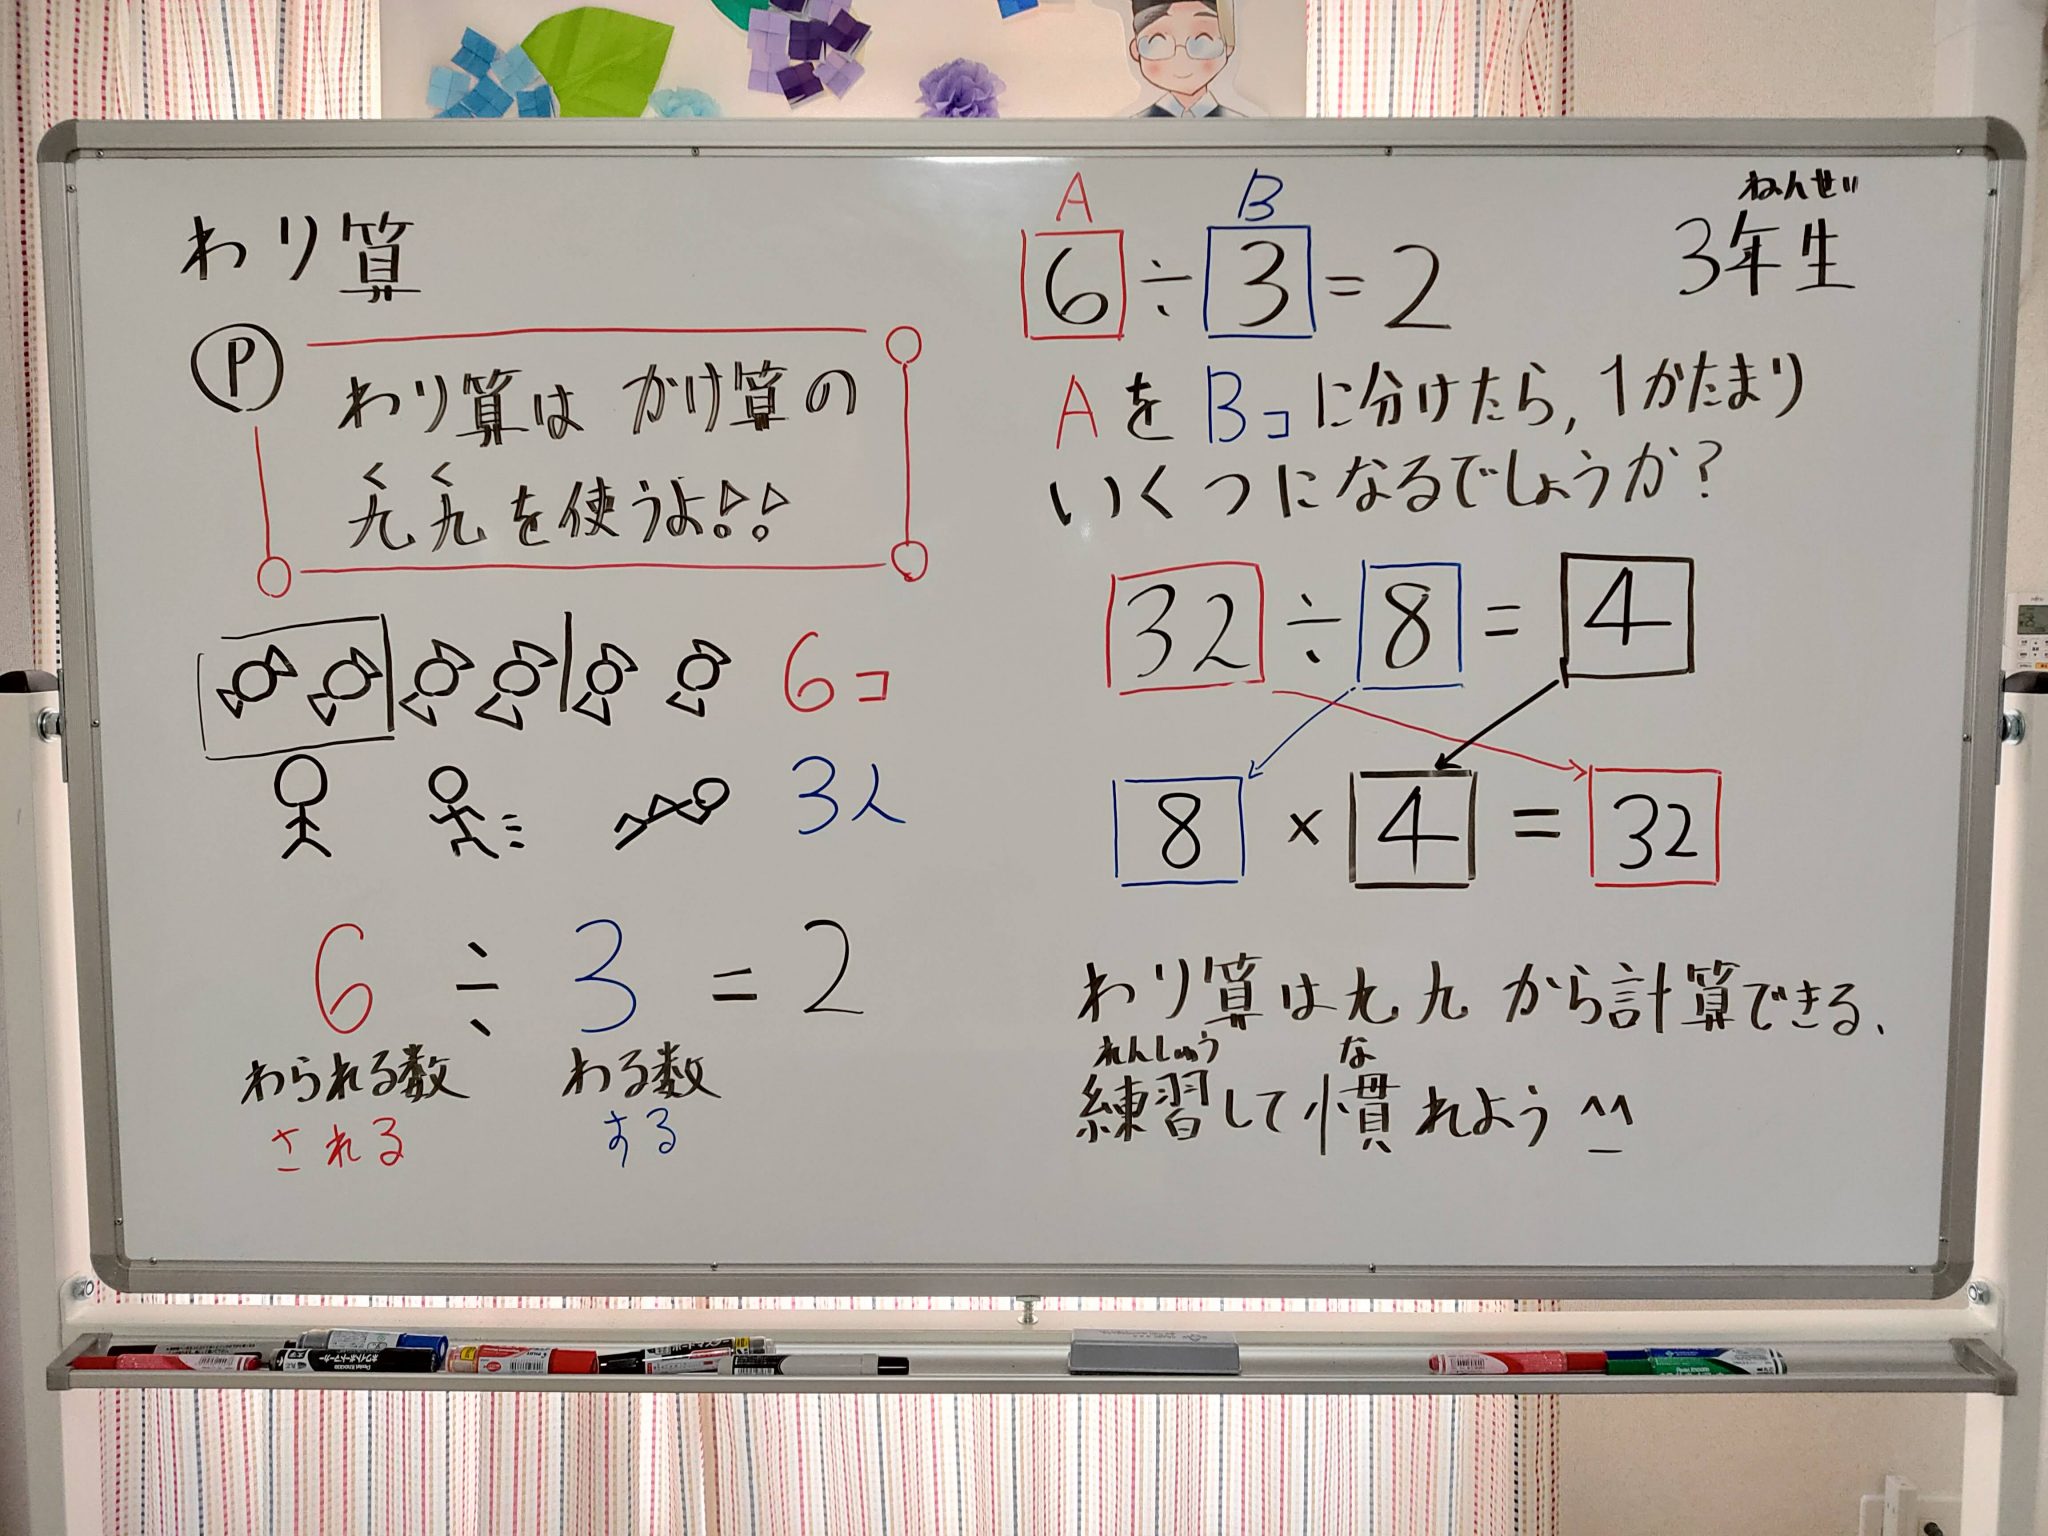 わり算
P
わり算は かけ算の
くく
九九を使うよ!!
6コ
3人
6 ÷ 3 = 2
わられる数 わる数
される する
A B
6 ÷ 3 = 2
ねんせい
3年生
AをBコに分けたら,1かたまり
いくつになるでしょうか?
32 ÷ 8 = 4
8 × 4 = 32
わり算は九九から計算できる、
れんしゅう な
練習して慣れよう ^_^